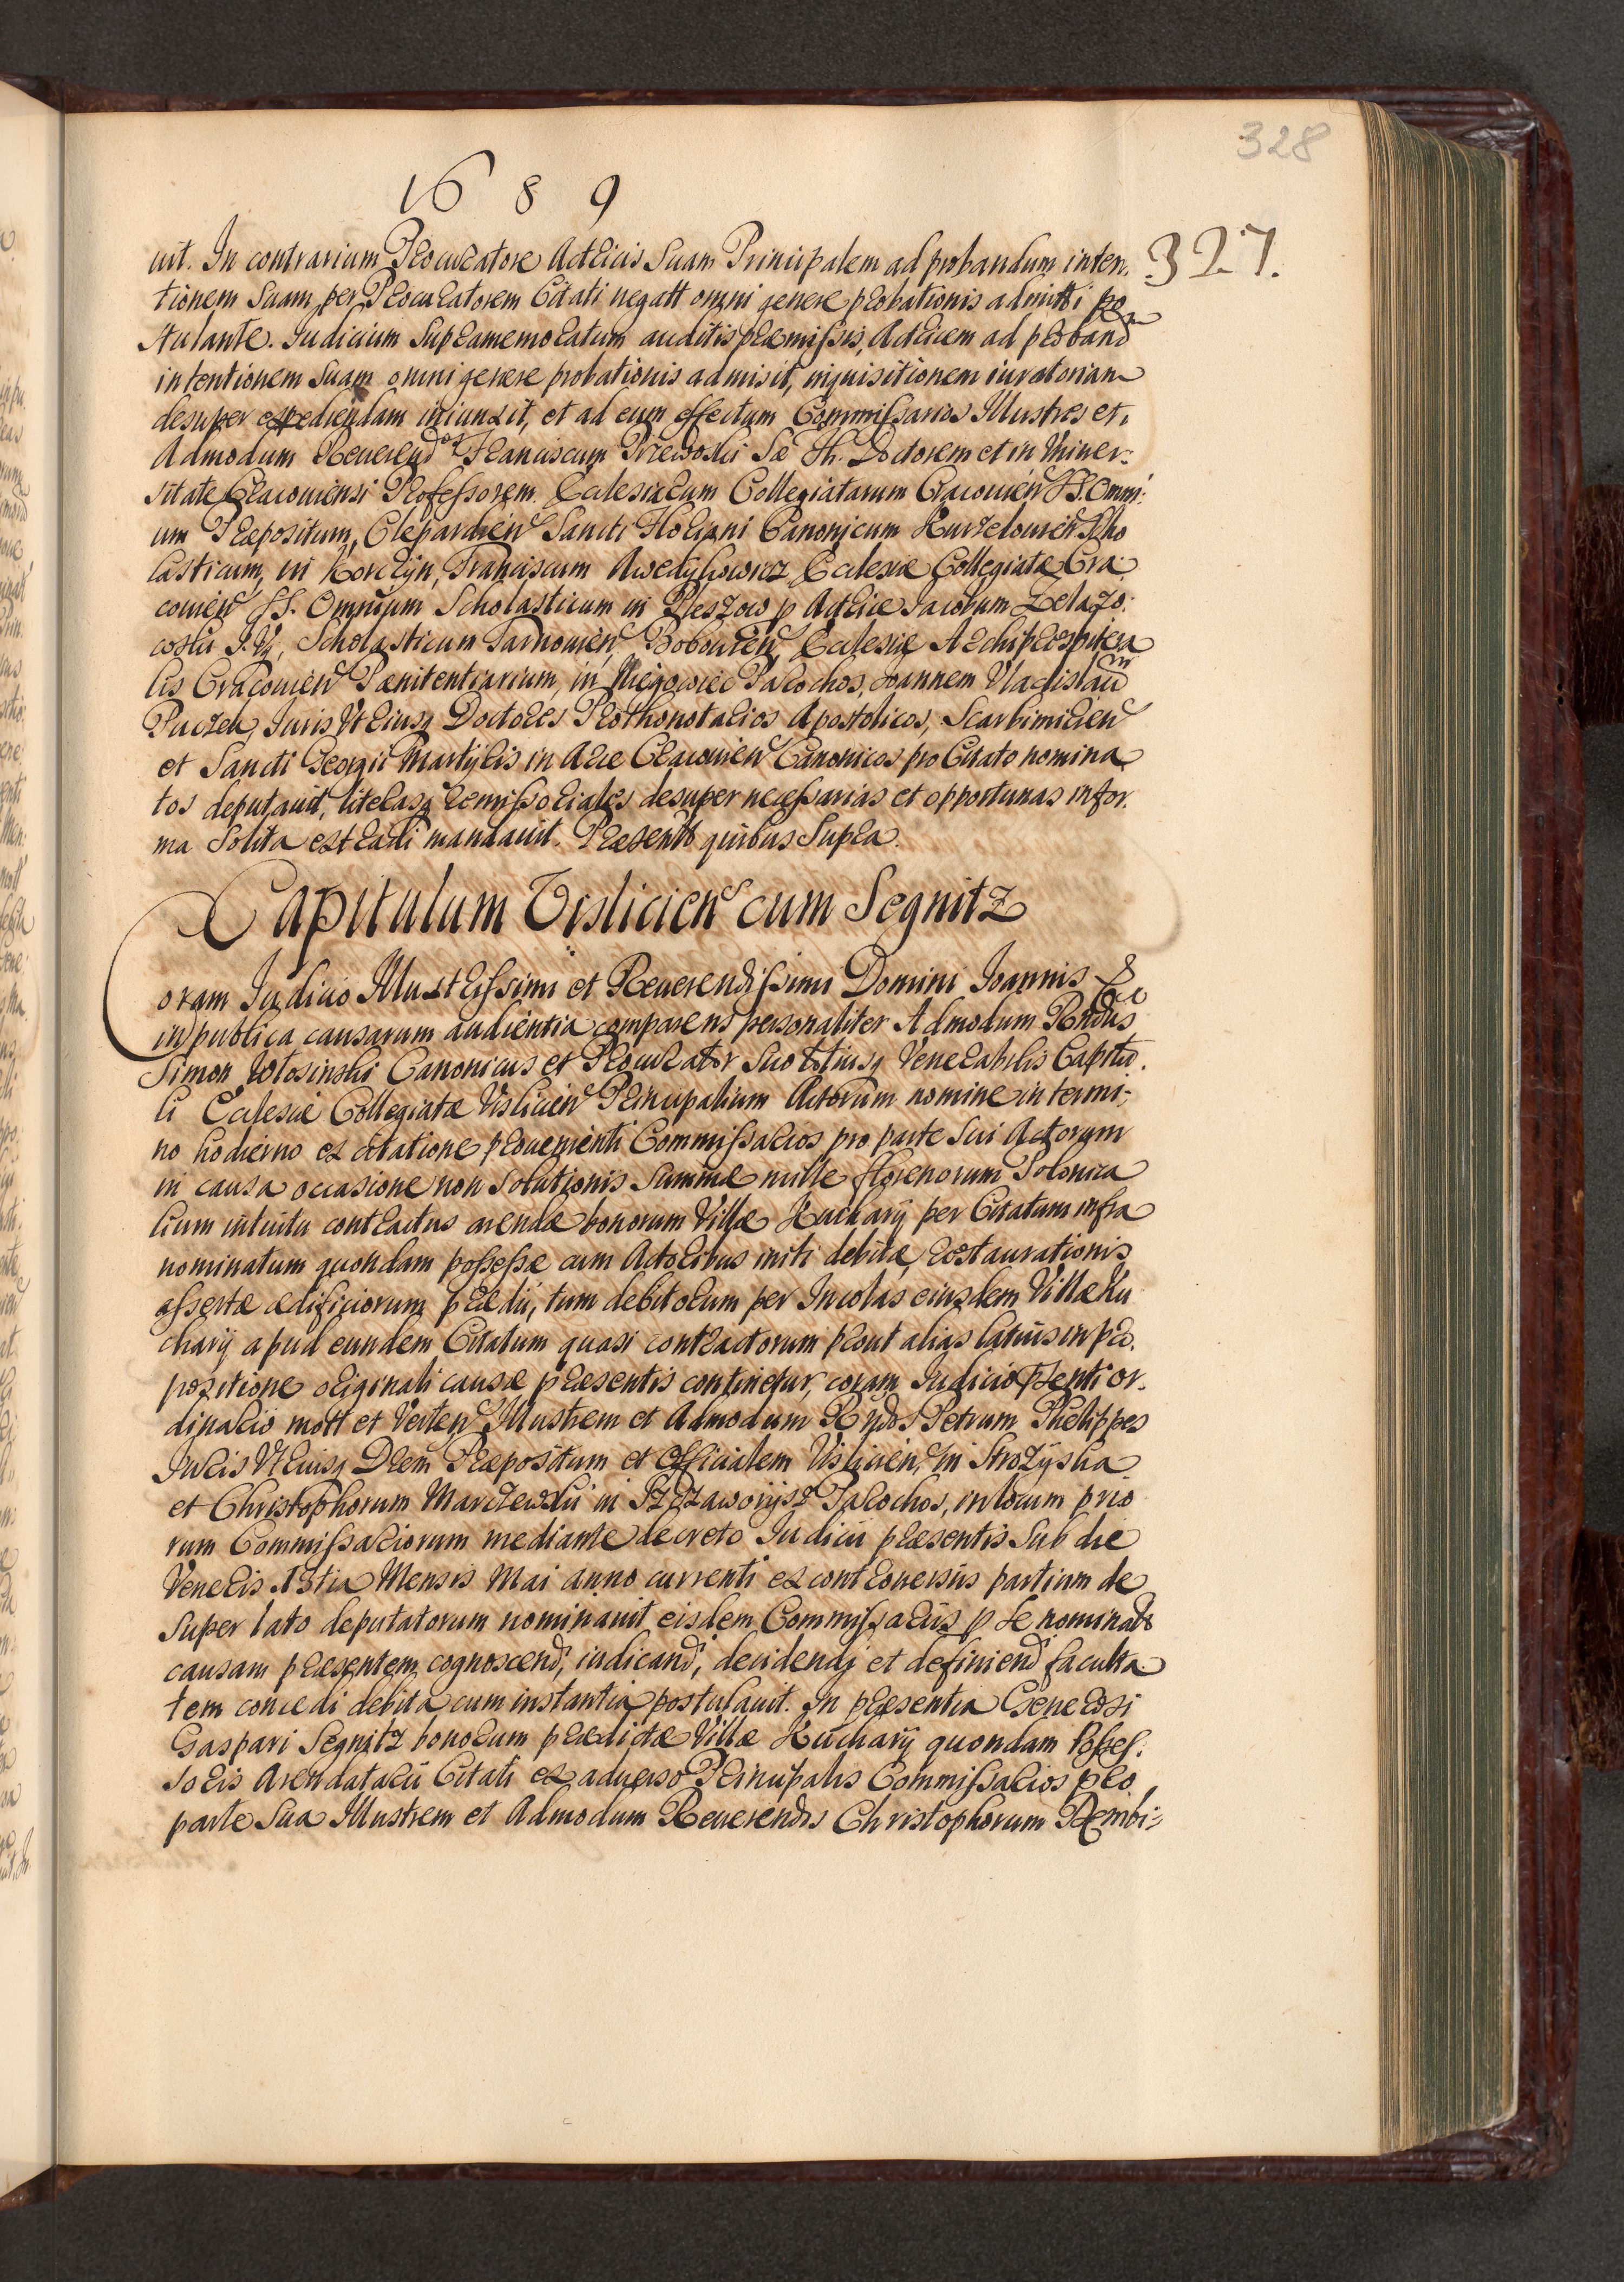 328
1689
327.
uit. In contrarium Procuratore Actricis Suam Principalem ad probandum inten-
tionem Suam, per Procuratorem Citati negatt omni genere probationis admitti po
stulante. Iudicium Supramemoratum auditis præmissis, Actricem ad proband
intentionem Suam omni genere probationis admisit, inquisitionem iuratoriam
desuper expediendam iniunxit, et ad eum effectum Commissarios Illustres et
Admodum Reuerendos Franciscum Przewoski Sæ Th. Doctorem et in Vniuer-
sitate Cracouiensi Professorem. Ecclesiarum Collegiatarum Cracouien SS. Omni-
um Præpositum, Clepardien Sancti Floriani Canonicum Kurzelouien Scho
lasticum, in Korczyn, Franciscum Awedykowicz Ecclesiæ Collegiatæ Cra
couien SS. Omnium Scholasticum in Pleszow p Actrice Iacobum Zelazo-
wski I. V., Scholasticum Tarnouien, Bobouien, Ecclesiæ Archipresbitera
lis Cracouien Pænitentiarium, in Niegowiec Parochos, Joannem Vladislaum
Puczek, Iuris Vtriusq Doctores Prothonotarios Apostolicos, Scarbimirien
et Sancti Georgii Martyris in Arce Cracouien Canonicos pro Citato nomina
tos deputauit, literasq remissoriales desuper necessarias et opportunas in for-
ma Solita extradi mandauit. Præsentt quibus Supra.
Capitulum Vislicien cum Segnitz
Coram Iudicio Illustrissimi et Reuerendissimi Domini Ioannis &c
in publica causarum audientia comparens personaliter Admodum Rndus
Simon Wosinski Canonicus et Procurator Suo totiusq Venerabilis Capitu-
li Ecclesiæ Collegiatæ Vislicien Principalium Actorum nomine in termi-
no hodierno ex citatione proueniénti Commissarios pro parte Sui Actorum
in causa occasione non Solutionis Summæ mille florenorum Polonica
lium intuitu contractus arendæ bonorum Villæ Kuchary per Citatum infra
nominatum quondam possessæ cum Actoribus initi debitæ, restaurationis
assertæ ædificiorum prædii, tum debitorum per Incolas eiusdem Villæ Ku
chary apud eundem Citatum quasi contractorum prout alias latius in pro-
positione originali causæ præsentis continetur, coram Iudicio psenti or-
dinario mott et Verten, Illustrem et Admodum Rndos Petrum Phelippes
Iuris Vtriusq Drem Præpositum et Officialem Vislicien, in Strozyska
et Christophorum Marczewski in Szczaworysz Parochos, in locum prio
rum Commissariorum mediante decreto Iudicii præsentis Sub die
Veneris 13tia Mensis Mai anno currenti ex controuersiis partium de
super lato deputatorum nominauit eisdem Commissariis p Se nominatt
causam præsentem cognoscend, iudicand, decidendi et definiend faculta
tem concedi debita cum instantia postulauit. In præsentia Generosi
Gaspari Segnitz bonorum prædictæ Villæ Kuchary quondam Posses-
soris Arendatarii Citati ex aduerso Principalis Commissarios pro
parte Sua Illustrem et Admodum Reuerendos Christophorum Dembi-